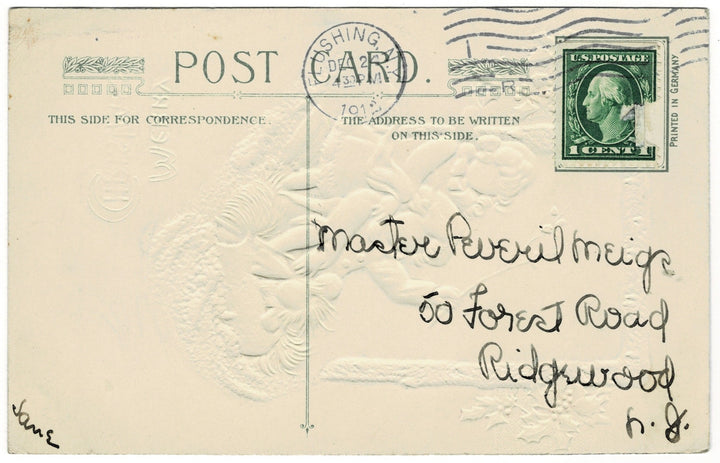 FLUSHING, N.Y.
DEC 2
4 30 PM
1912
POST CARD.
U.S. POSTAGE
1 CENT 1
PRINTED IN GERMANY
THIS SIDE FOR CORRESPONDENCE.
THE ADDRESS TO BE WRITTEN
ON THIS SIDE.
Master Peveril Meigs
50 Forest Road
Ridgewood
N. J.
Jane